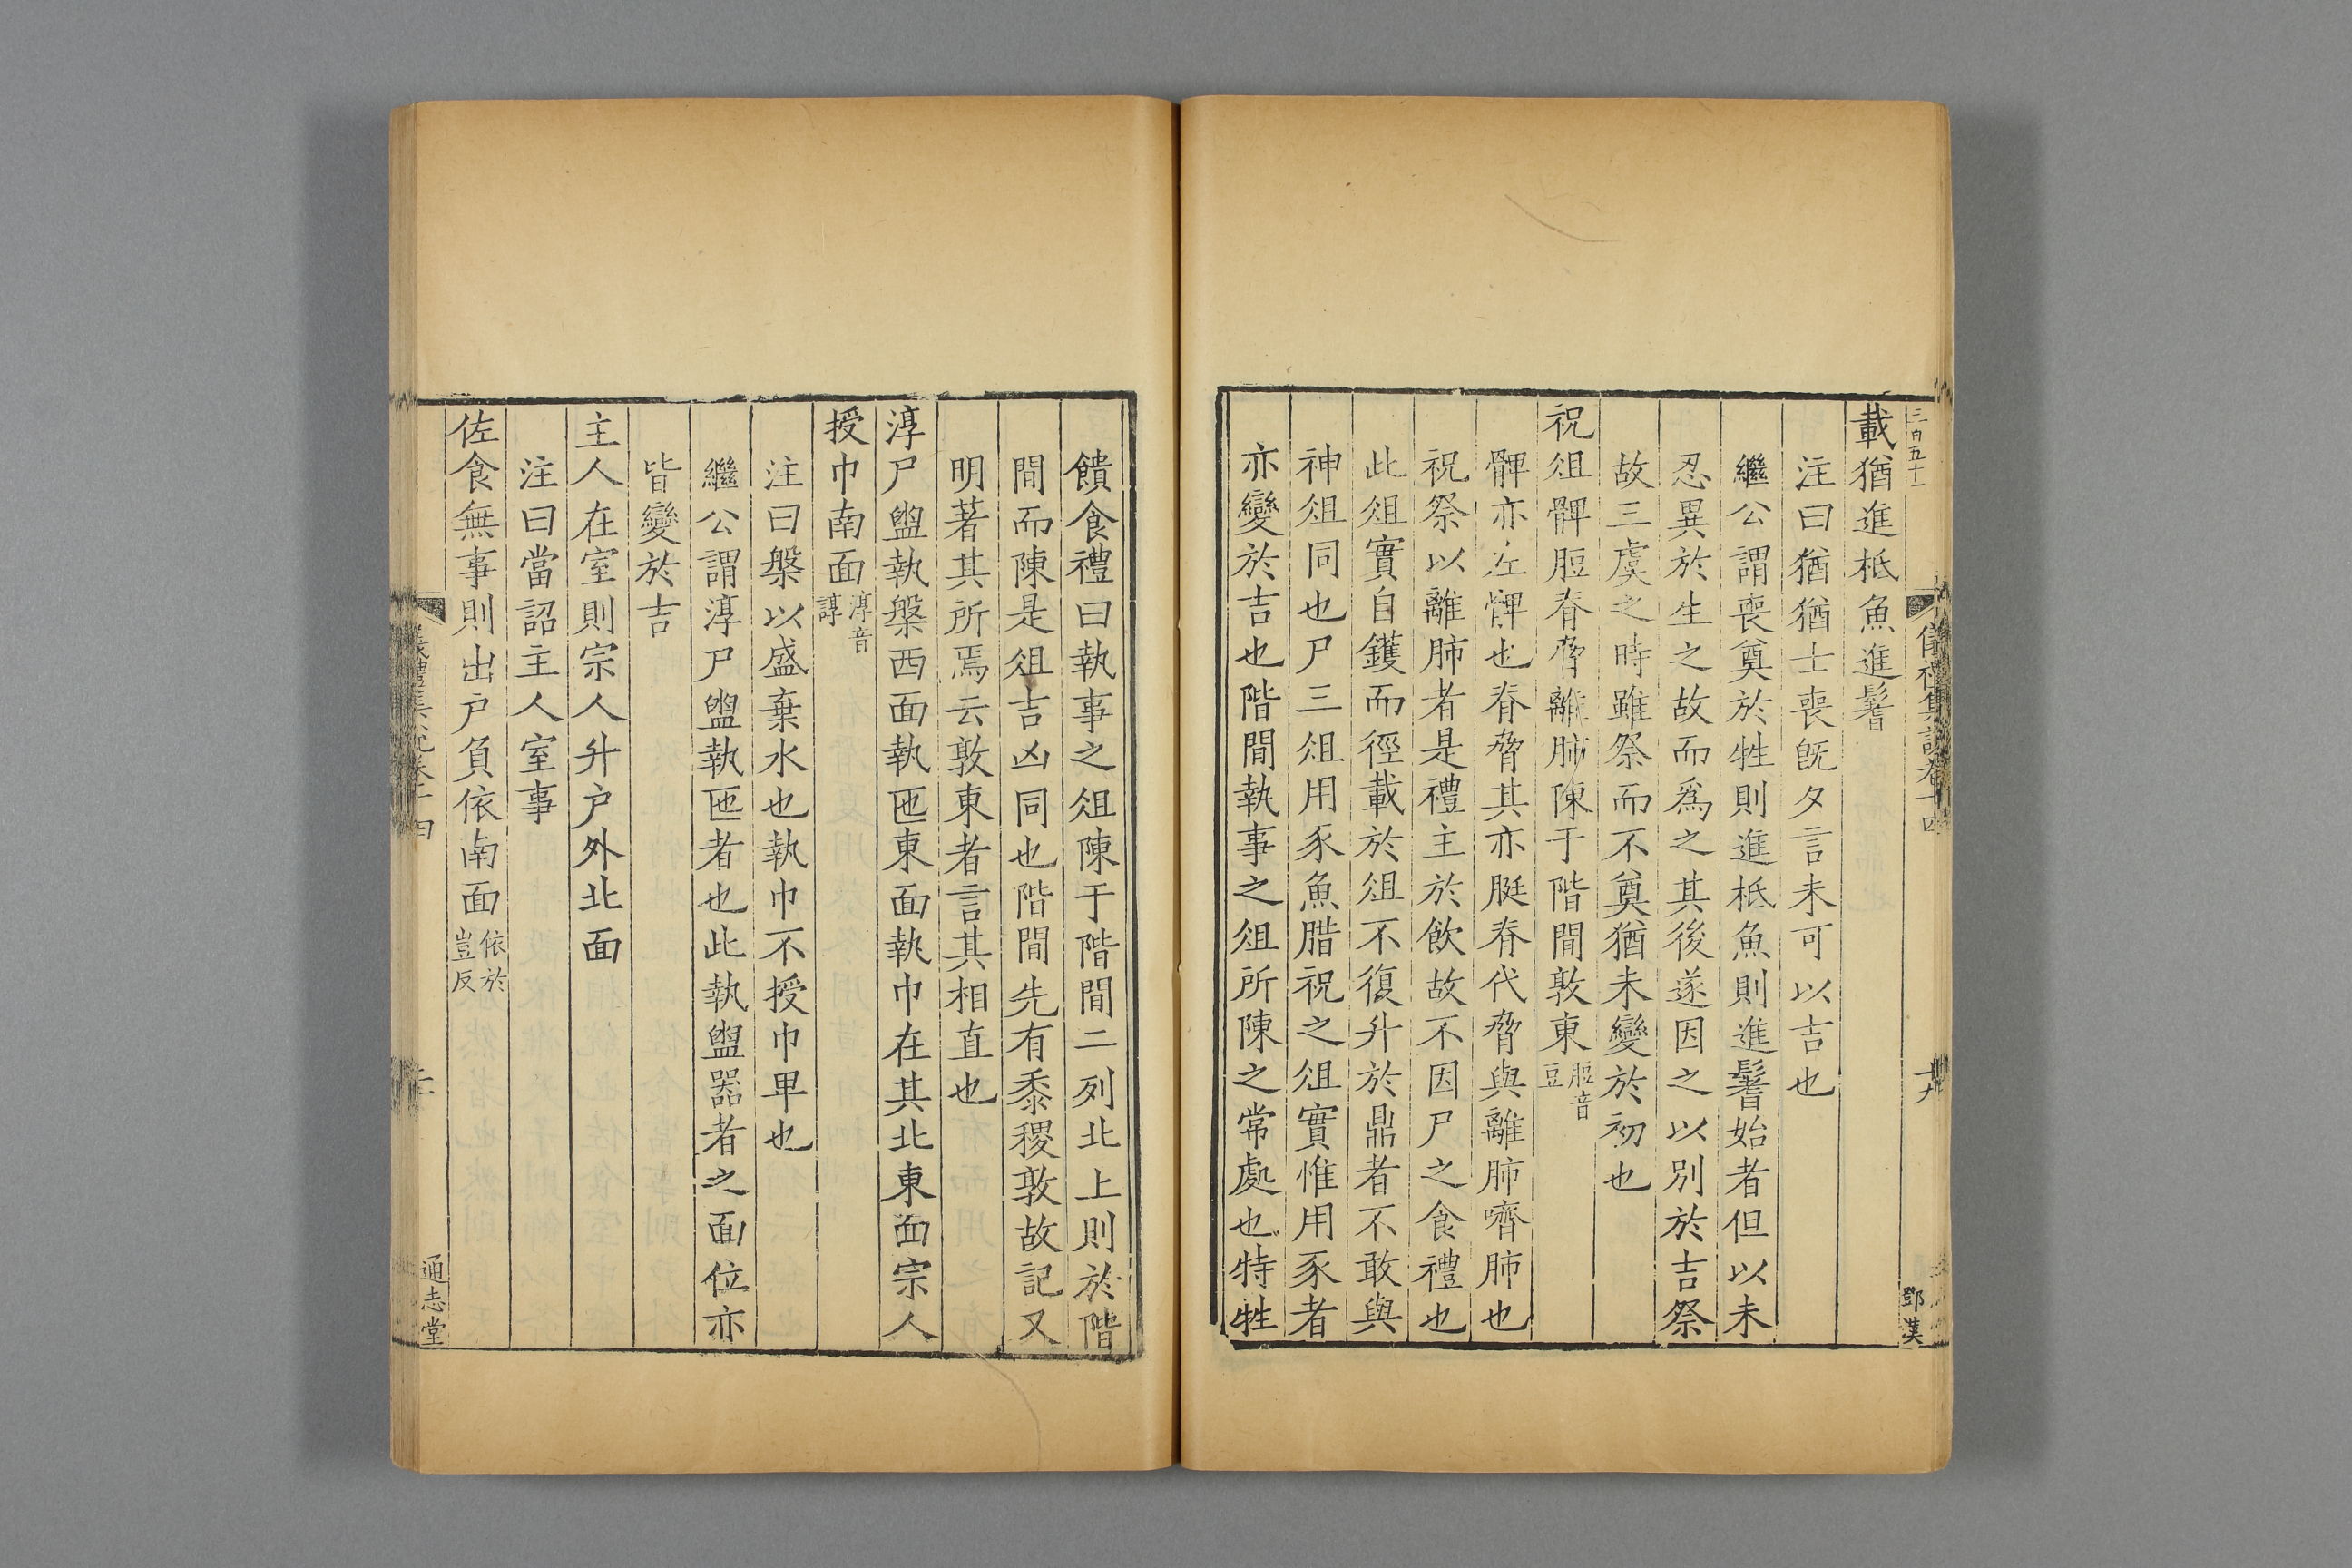 三百五十一
儀禮集說卷十四
十九
鄧漢
載猶進柢魚進鬐
注曰猶猶士喪既夕言未可以吉也
繼公謂喪奠於牲則進柢魚則進鬐始者但以未
忍異於生之故而爲之其後遂因之以別於吉祭
故三虞之時雖祭而不奠猶未變於初也
祝俎髀脰脊脅離肺陳于階間敦東脰音豆
髀亦左髀也脊脅其亦脡脊代脅與離肺嚌肺也
祝祭以離肺者是禮主於飲故不因尸之食禮也
此俎實自鑊而徑載於俎不復升於鼎者不敢與
神俎同也尸三俎用豕魚腊祝之俎實惟用豕者
亦變於吉也階間執事之俎所陳之常處也特牲
饋食禮曰執事之俎陳于階間二列北上則於階
間而陳是俎吉凶同也階間先有黍稷敦故記又
明著其所焉云敦東者言其相直也
淳尸盥執槃西面執匜東面執巾在其北東面宗人
授巾南面淳音諄
注曰槃以盛棄水也執巾不授巾卑也
繼公謂淳尸盥執匜者也此執盥器者之面位亦
皆變於吉
主人在室則宗人升户外北面
注曰當詔主人室事
佐食無事則出户負依南面依於豈反
儀禮集說卷十四
通志堂